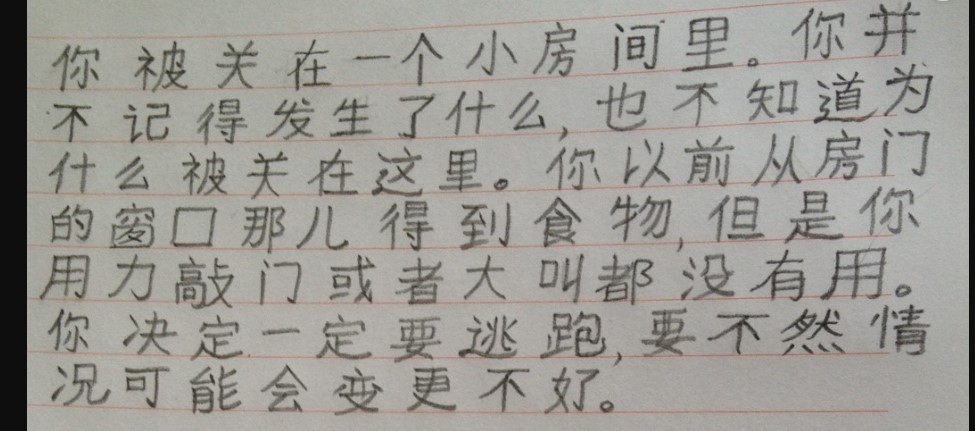 你被关在一个小房间里。你并
不记得发生了什么,也不知道为
什么被关在这里。你以前从房门
的窗口那儿得到食物,但是你
用力敲门或者大叫都没有用。
你决定一定要逃跑,要不然情
况可能会变更不好。